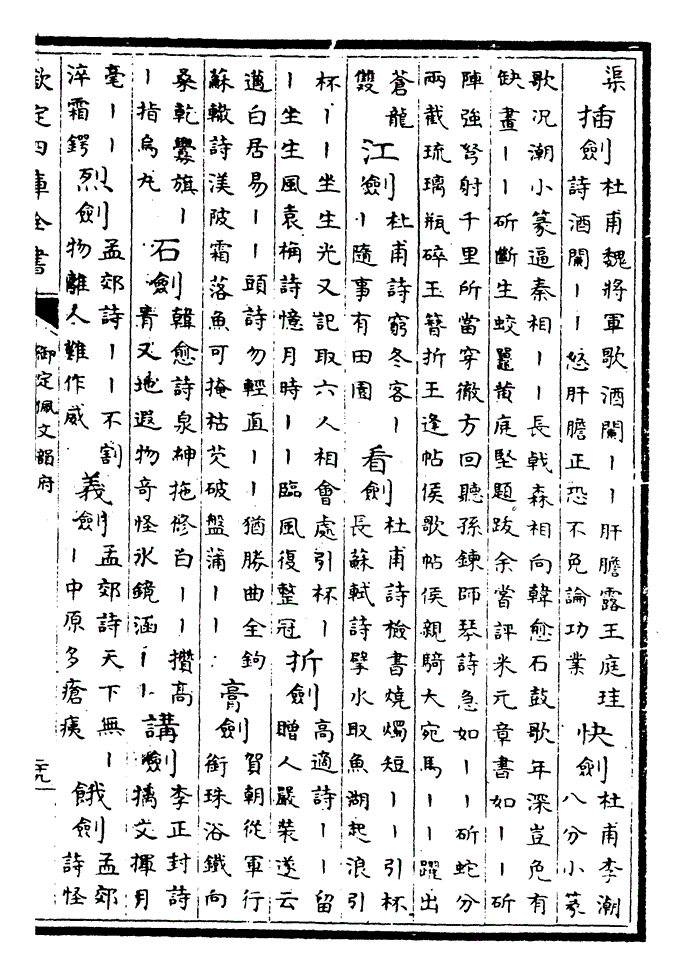 渠
插劍
杜甫魏將軍歌酒闌||肝膽露王庭珪
詩酒闌||怒肝膽正恐不免論功業
快劍
杜甫李潮
八分小篆
歌況潮小篆逼秦相||長戟森相向韓愈石鼓歌年深豈免有
缺畫||斫斷生蛟鼉黄庭堅題跋余嘗評米元章書如||斫
陣強弩射千里所當穿徹方回聽孫鍊師琴詩急如||斫蛇分
兩截琉璃瓶碎玉簪折王逢帖侯歌帖侯親騎大宛馬||躍出
蒼龍
雙
江劍
杜甫詩窮冬客|
|隨事有田園
看劍
杜甫詩檢書燒燭短||引杯
長蘇軾詩擘水取魚湖起浪引
杯||坐生光又記取六人相會處引杯|
|坐生風袁桷詩憶月時||臨風復整冠
折劍
高適詩||留
贈人嚴裝遂云
邁白居易||頭詩勿輕直||猶勝曲全鉤
蘇轍詩渼陂霜落魚可掩枯芡破盤蒲||
膏劍
賀朝從軍行
銜珠浴鐵向
桑乾釁旗|
|指烏丸
石劍
韓愈詩泉紳拖修白||攢高
青又地遐物奇怪水鏡涵||
講劍
李正封詩
摛文揮月
毫||
淬霜鍔
烈劍
孟郊詩||不割
物離人難作威
義劍
孟郊詩天下無|
|中原多瘡痍
餓劍
孟郊
詩怪
欽定四庫全書
御定佩文韻府